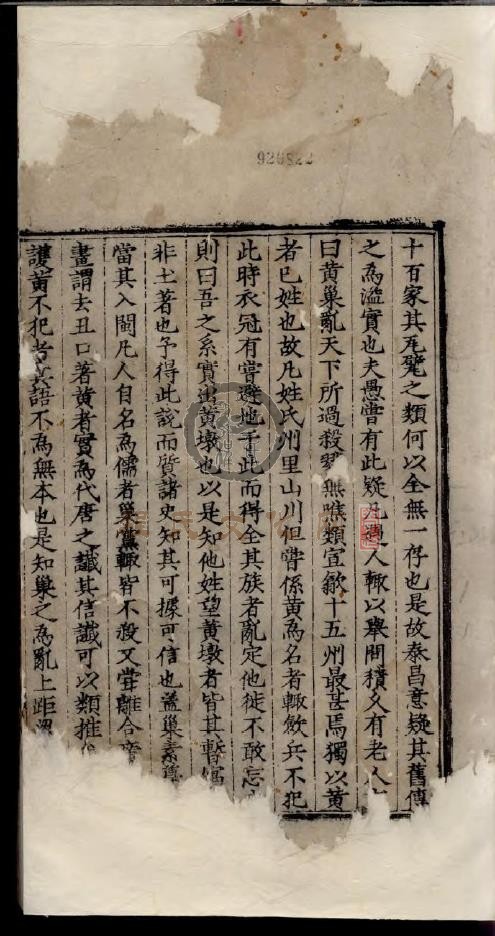 十百家其瓦甓之類何以全無一存也是故泰昌意疑其舊傳
之為溢實也夫愚嘗有此疑凡遇人輙以舉問積久有老人
曰黄巢亂天下所過殺無噍類宣歙十五州最甚焉獨以黄
者已姓也故凡姓氏州里山川但嘗係黄為名者輙斂兵不犯
此時衣冠有嘗避地于此而得全其族者亂定他徙不敢忘
則曰吾之系實出黄墩也以是知他姓望黄墩者皆其暫寓
非土著也予得此説而質諸史知其可據可信也盖巢素
當其入閩凡人自名為儒者巢黨輙皆不殺又嘗離合
畫謂去丑口著黄者實為代唐之讖其信讖可以類推
護黄不犯者其語不為無本也是知巢之為亂上距
926822